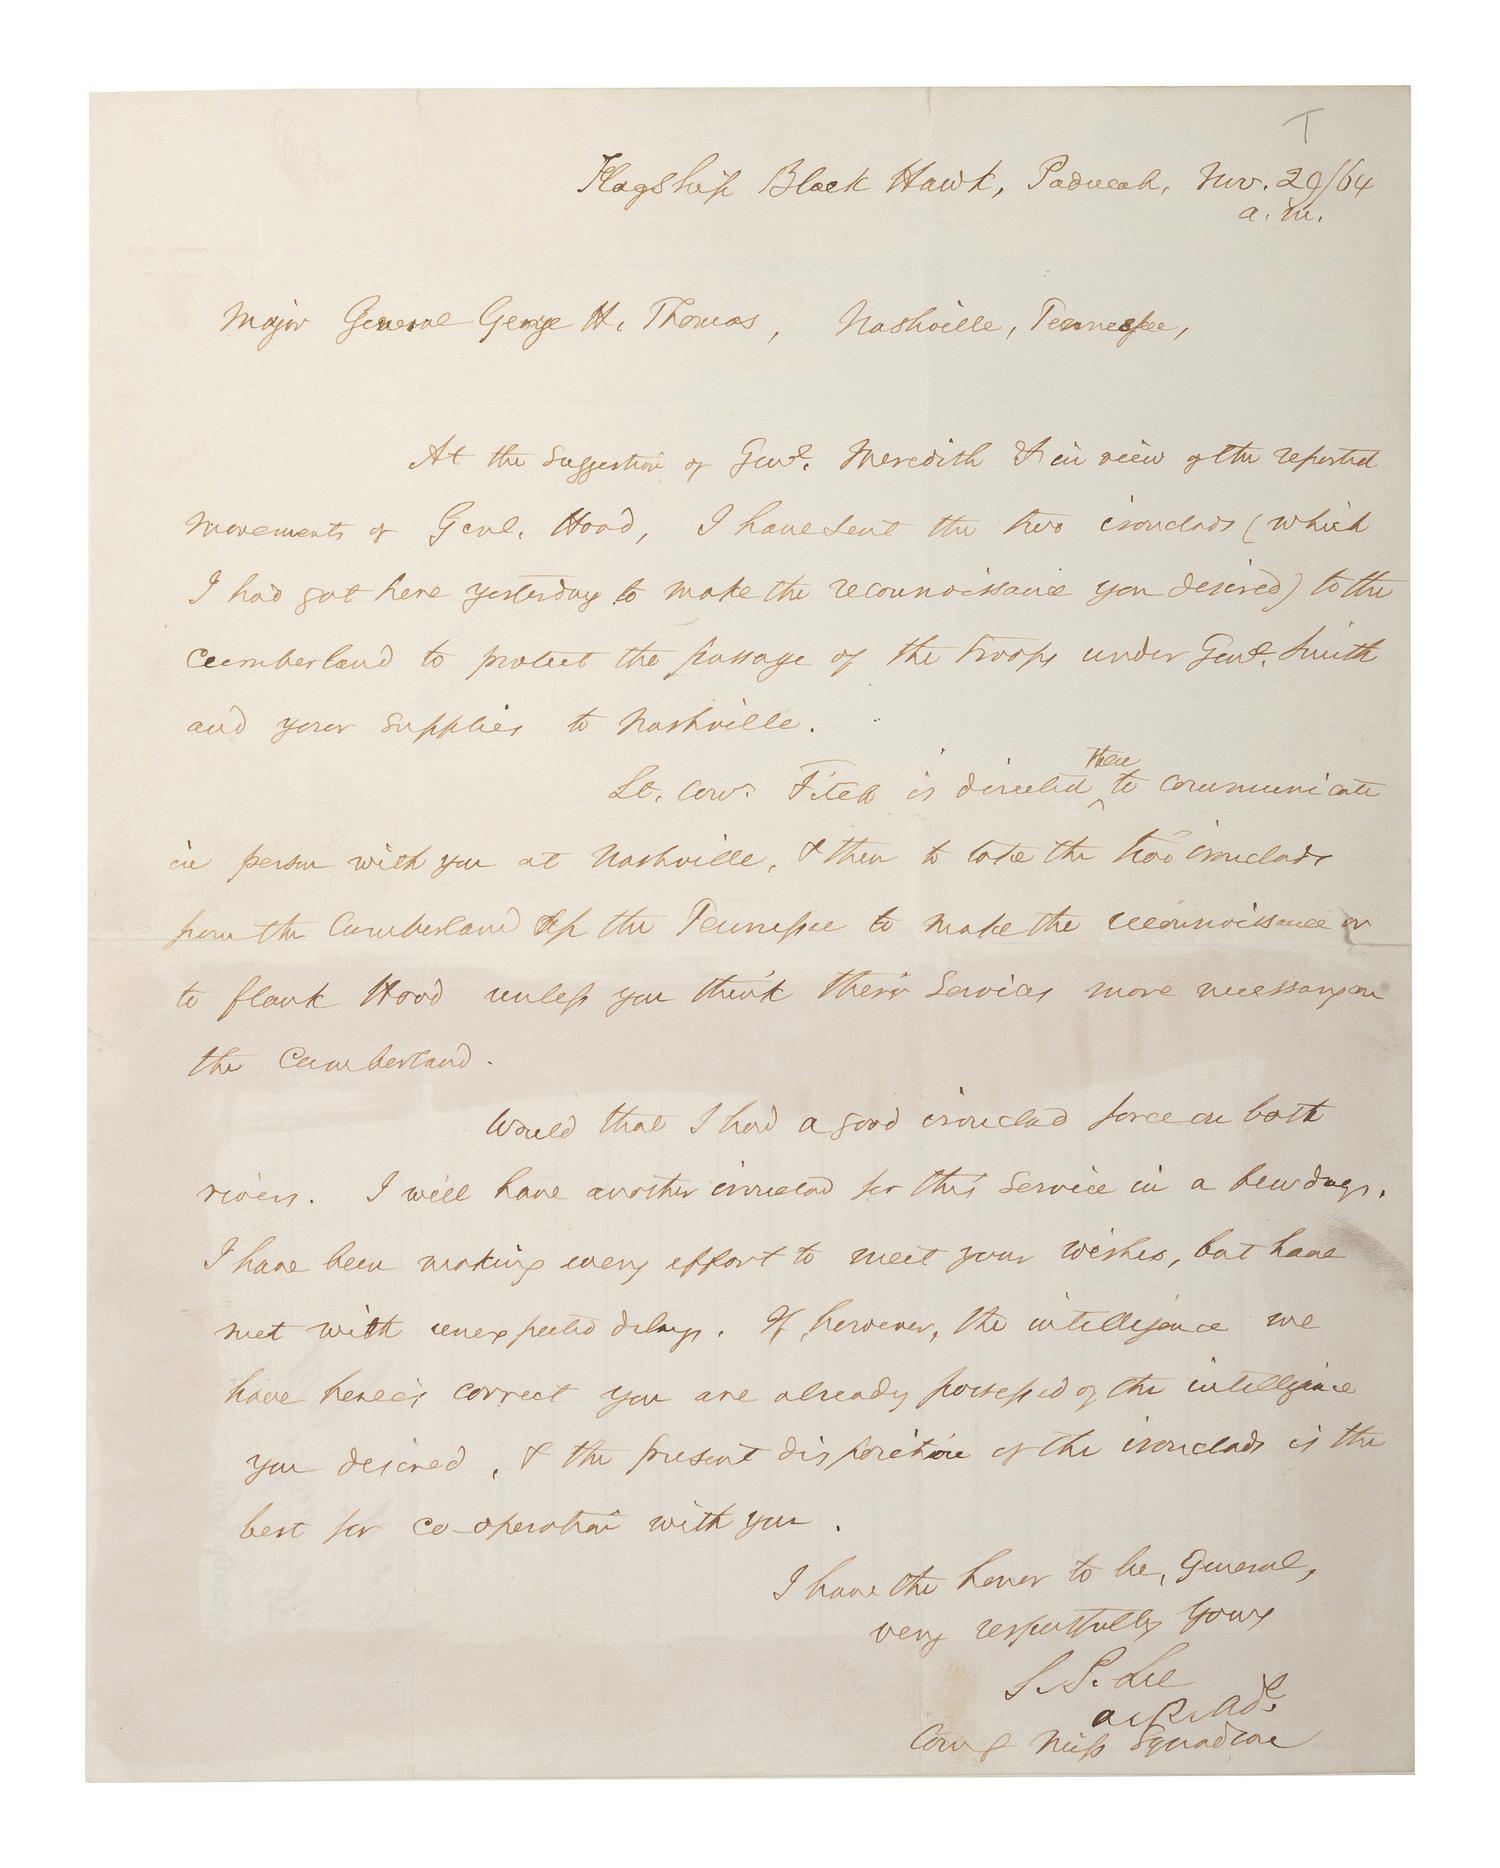 T
Flagship Black Hawk, Paducah, Nov. 29/64
a.m.
Major General George H. Thomas, Nashville, Tennessee,
At the suggestion of Genl. Meredith & in view of the reported
movements of Genl. Hood, I have sent the two ironclads (which
I had got here yesterday to make the reconnoissance you desired) to the
Cumberland to protect the passage of the troops under Genl. Smith
and your supplies to Nashville.
then
Lt. Com. Fitch is directed ^ to communicate
in person with you at Nashville, & then to take the two ironclads
from the Cumberland up the Tennessee to make the reconnoissance or
to flank Hood unless you think their services more necessary on
the Cumberland.
Would that I had a good ironclad force on both
rivers. I will have another ironclad for this service in a few days.
I have been making every effort to meet your wishes, but have
met with unexpected delays. If, however, the intelligence we
have here is correct you are already possessed of the intelligence
you desired, & the present disposition of the ironclads is the
best for co-operation with you.
I have the honor to be, General,
very respectfully yours
S. P. Lee
a. R. Adl.
Comg Miss Squadron